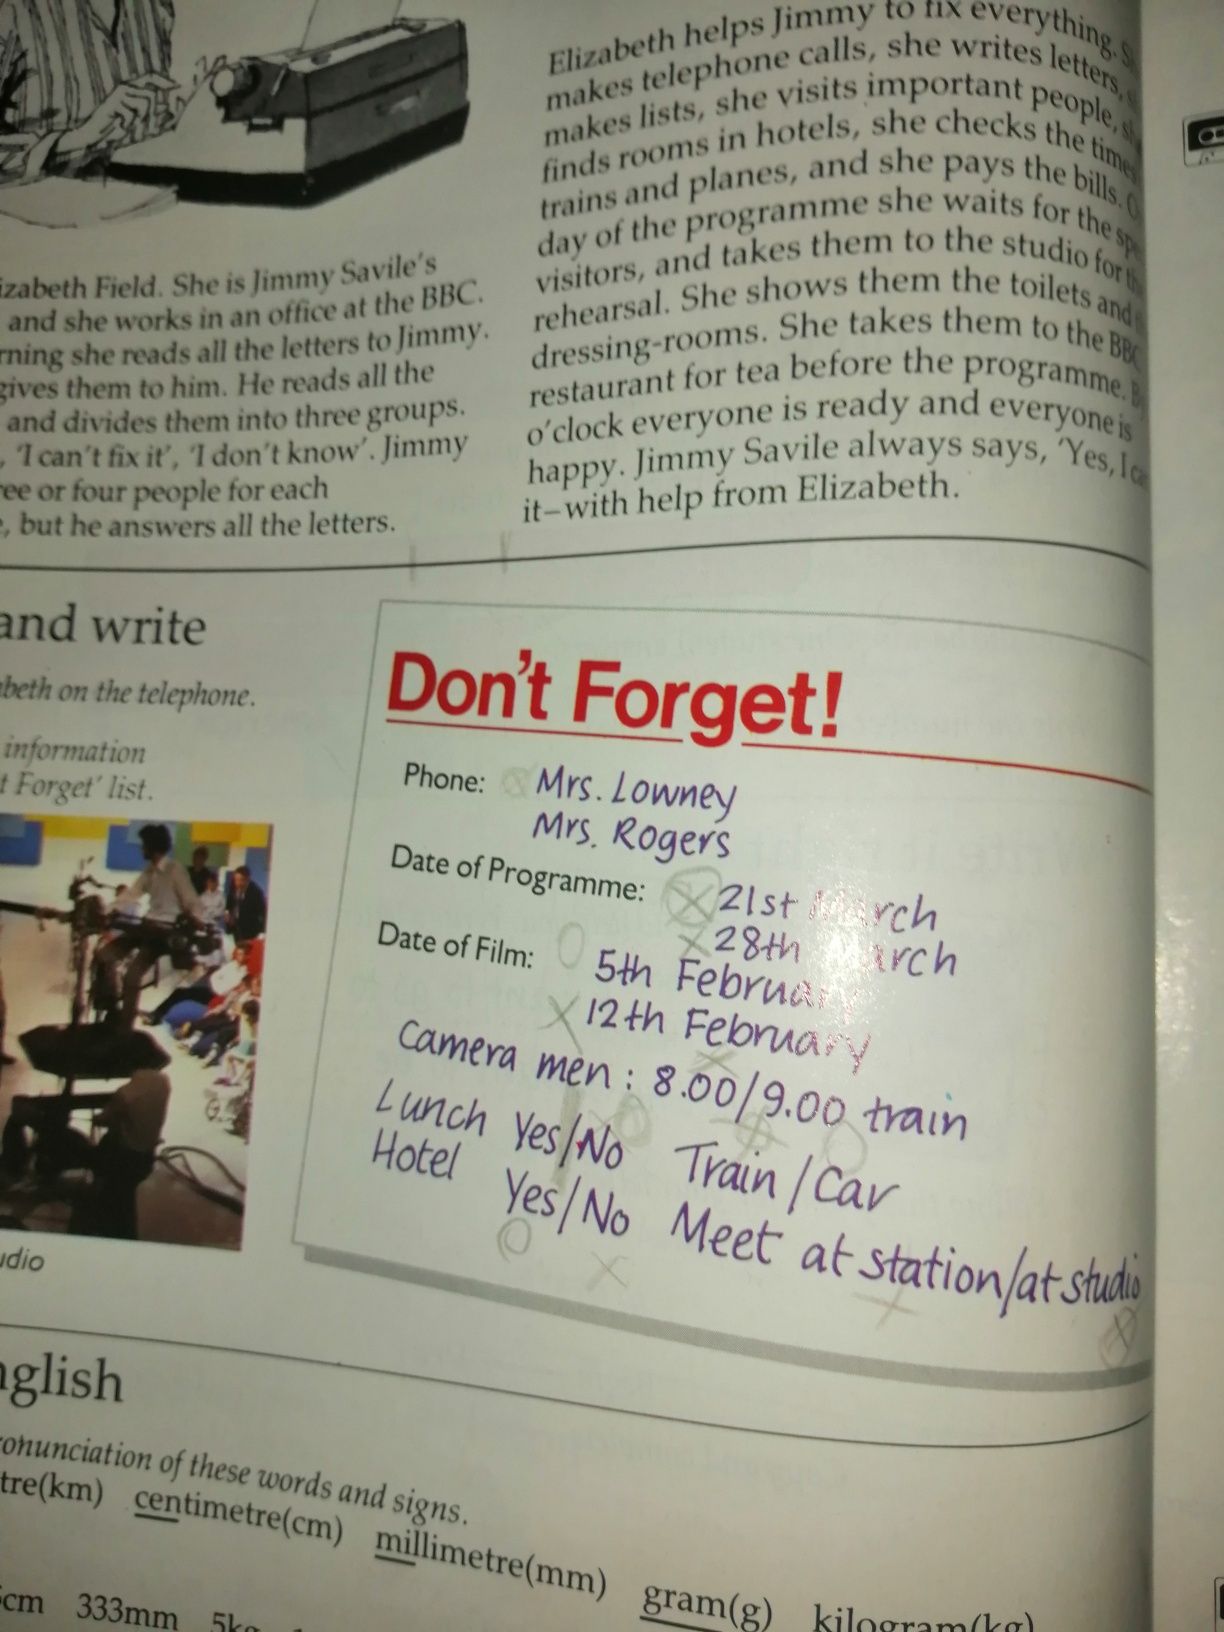 Elizabeth helps Jimmy to fix everything.
makes telephone calls, she writes letters,
makes lists, she visits important people,
finds rooms in hotels, she checks the times
trains and planes, and she pays the bills.
day of the programme she waits for the
visitors, and takes them to the studio for
rehearsal. She shows them the toilets and
dressing-rooms. She takes them to the BBC
restaurant for tea before the programme.
o'clock everyone is ready and everyone is
happy. Jimmy Savile always says, 'Yes, I
it–with help from Elizabeth.
Field. She is Jimmy Savile's
and she works in an office at the BBC.
she reads all the letters to Jimmy.
gives them to him. He reads all the
and divides them into three groups.
'I can't fix it', 'I don't know'. Jimmy
or four people for each
but he answers all the letters.
and write
on the telephone.
information
Forget' list.
Don't Forget!
Phone: Mrs. Lowney
Mrs. Rogers
Date of Programme: 21st March
28th March
Date of Film: 5th February
12th February
Camera men: 8.00/9.00 train
Lunch Yes/No Train/Car
Hotel Yes/No Meet at station/at studio
of these words and signs.
centimetre(cm) millimetre(mm) gram(g) kilogram(kg)
333mm